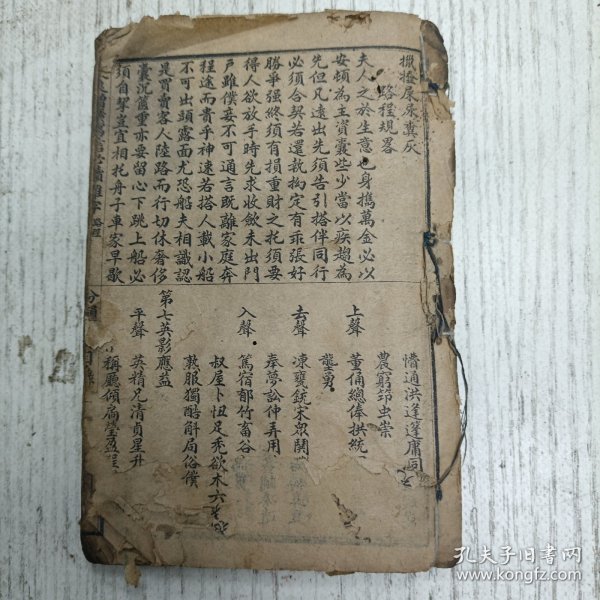 擸𢶍屎尿糞灰
路程規畧
夫人之於生意也身携萬金必以
安頓為主資囊些少當以疾趨為
先但凡遠出先須告引搭伴同行
必須合契若還執拘定有乖張好
勝爭强終須有損重財之托須要
得人欲放手時先求收歛未出門
戶雖僕妾不可通言既離家庭奔
程途而貴乎神速若搭人載小船
不可出頭露面尤恐船夫相識認
是買賣客人陸路而行切休奢侈
囊沉篋重亦要留心下跳上船必
須自挈豈宜相托舟子車家早歇
懵通洪逢篷庸同
農窮筇虫崇
上聲 董俑總俸拱統
壟勇
去聲 凍甕銃宋眾閧
奉夢訟仲弄用
入聲 篤宿郁竹畜谷
叔屋卜忸足秃欲木六
欶服獨酷斛局俗僕
第七英影應益
平聲 英精兄清貞星升
稱廳傾扃瑩盈呈
孔夫子旧书网
www.kongfz.com